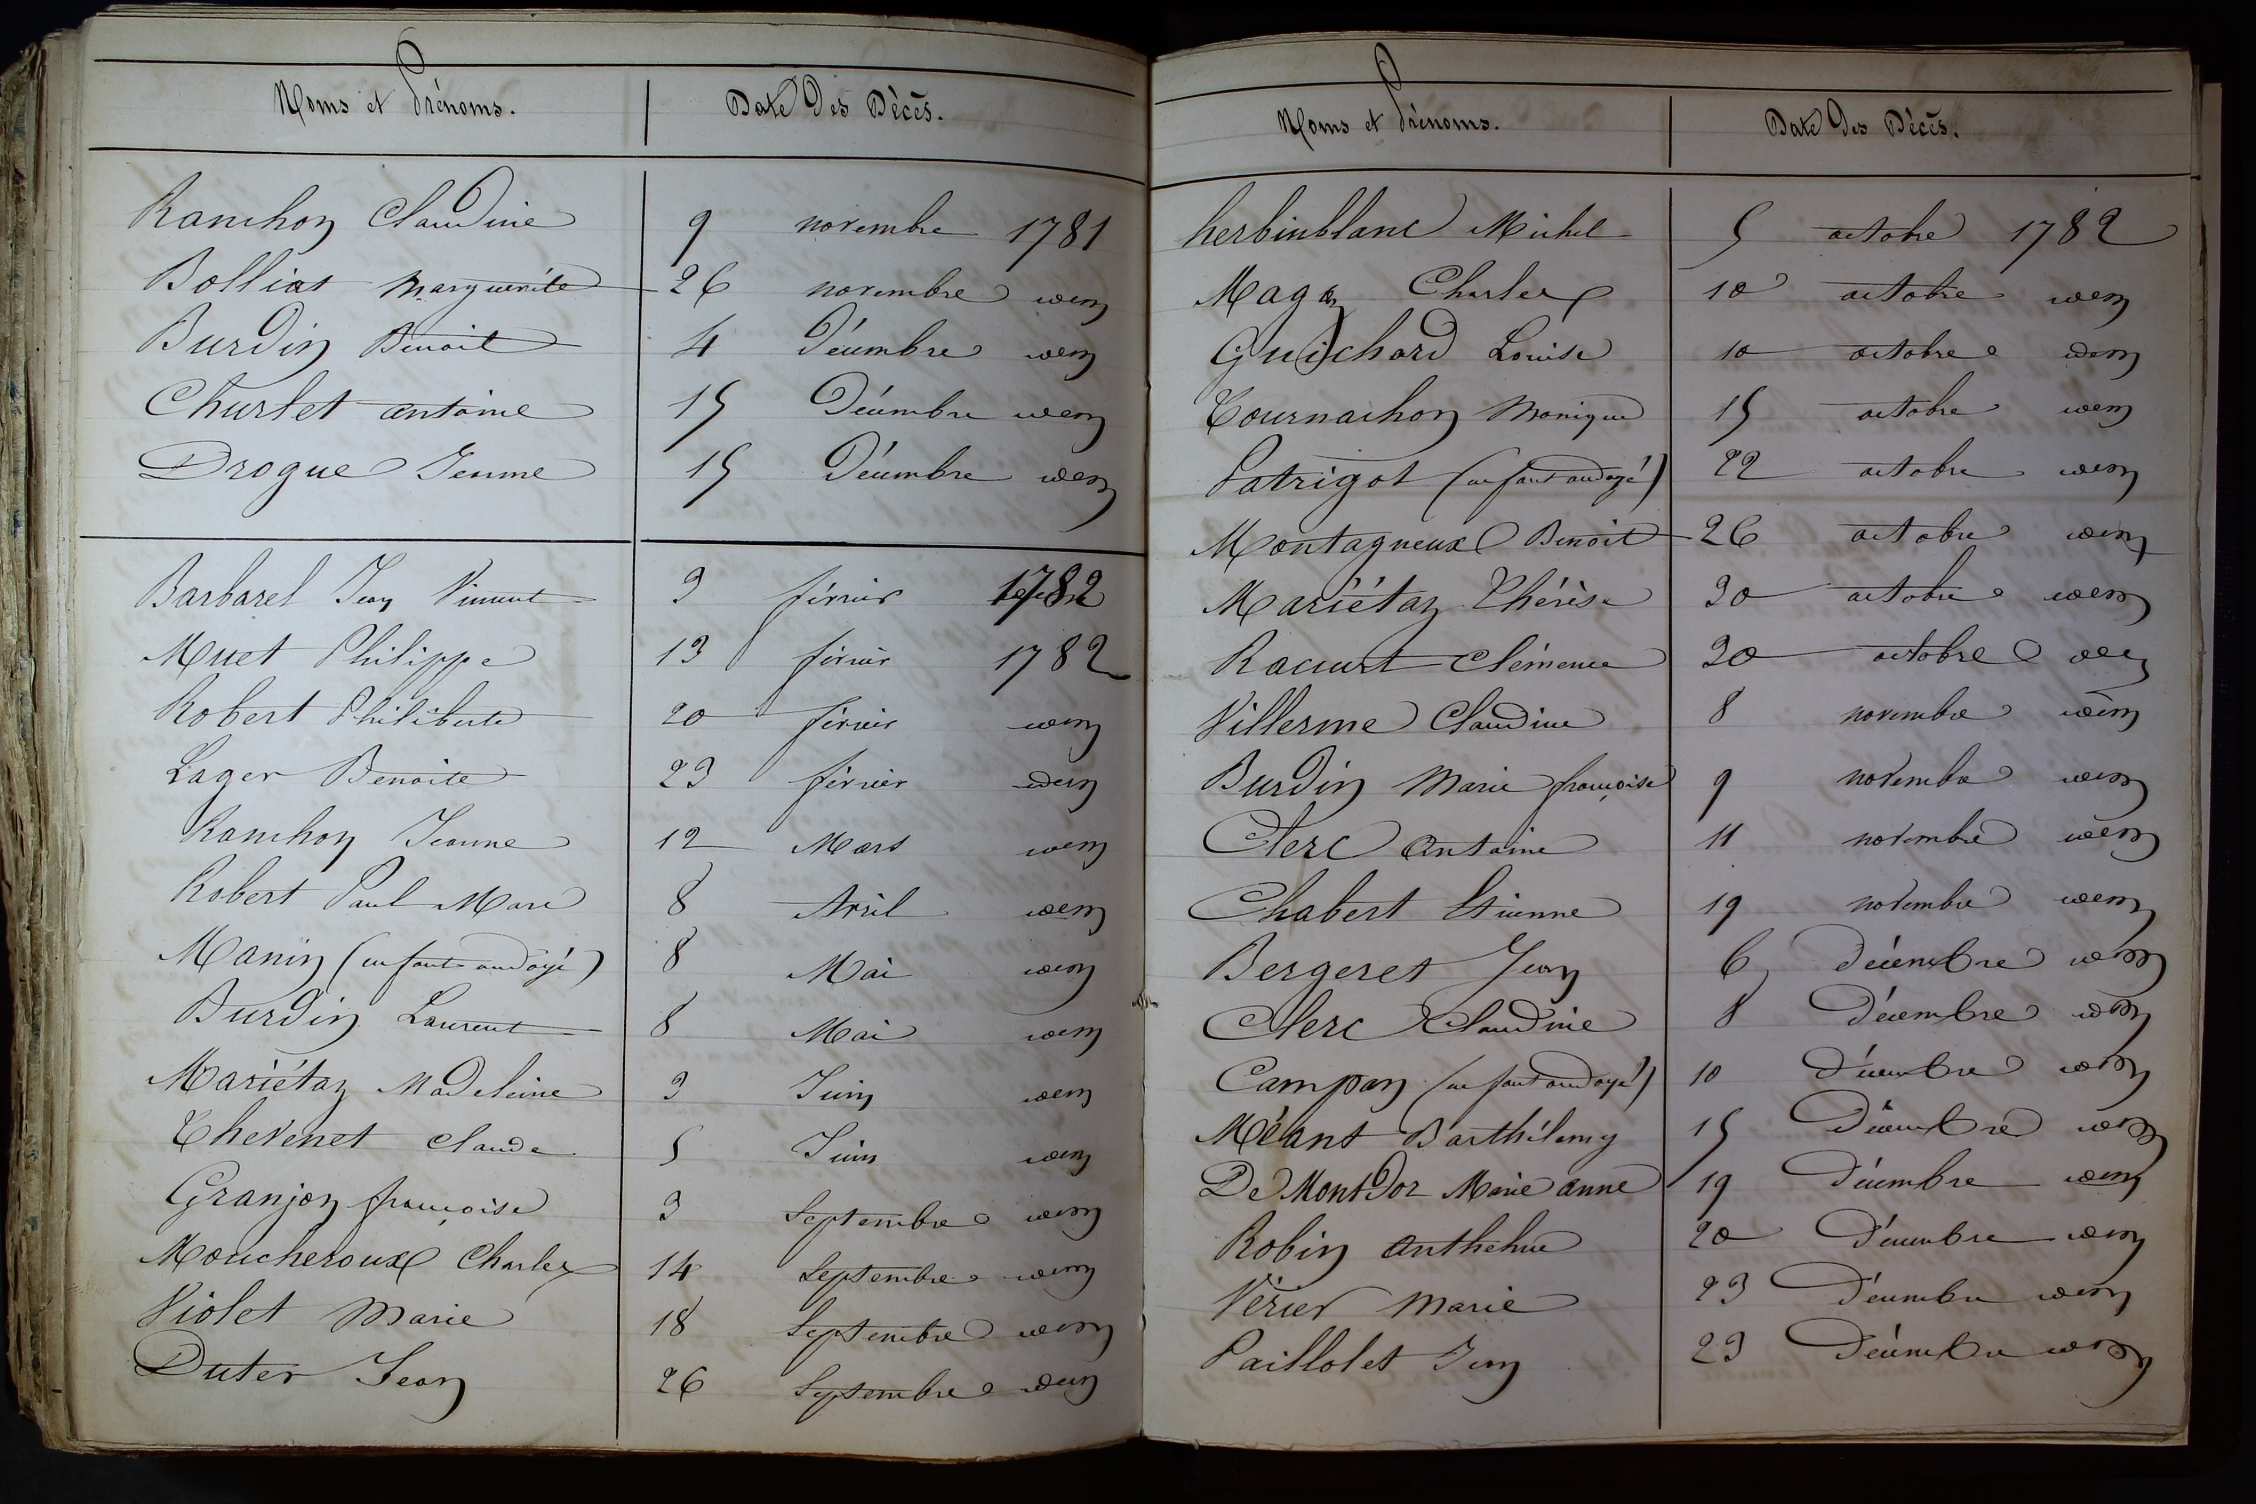 Noms et Prénoms. Date Des Décès.
Ranchon Claudine 9 novembre 1781
Bolliat Marguerite 26 novembre idem
Burdin Benoit 4 Décembre idem
Churlet antoine 15 Décembre idem
Drogue Jeanne 15 Décembre idem
Barbarel Jean Vincent 3 février 1782
Muet Philippe 13 février 1782
Robert Philiberte 20 février idem
Lager Benoite 23 février idem
Ranchon Jeanne 12 Mars idem
Robert Paul Marc 8 Avril idem
Manin (enfant ondoyé) 8 Mai idem
Burdin Laurent 8 Mai idem
Mariétan Madeleine 3 Juin idem
Thevenet Claude 5 Juin idem
Granjon françoise 3 Septembre idem
Moucheroux Charles 14 Septembre idem
Violet Marie 18 Septembre idem
Duter Jean 26 Septembre idem
Noms et Prénoms. Date Des Décès.
herbinblanc Michel 5 octobre 1782
Magan Charles 10 octobre idem
Guichard Louise 10 octobre idem
Tournachon Monique 15 octobre idem
Patrigot (enfant ondoyé) 22 octobre idem
Montagneux Benoit 26 octobre idem
Mariétan Thérèse 30 octobre idem
Racurt Clémence 30 octobre idem
Villerme Claudine 8 novembre idem
Burdin Marie françoise 9 novembre idem
Clerc antoine 11 novembre idem
Chabert Etienne 19 novembre idem
Bergeret Jean 6 décembre idem
Clerc Claudine 8 Décembre idem
Campan (enfant ondoyé) 10 décembre idem
Méant Barthélemy 15 Décembre idem
De MontDor Marie anne 19 Décembre idem
Robin anthelme 20 Décembre idem
Vérier Marie 23 Décembre idem
Paillolet Jean 23 Décembre idem